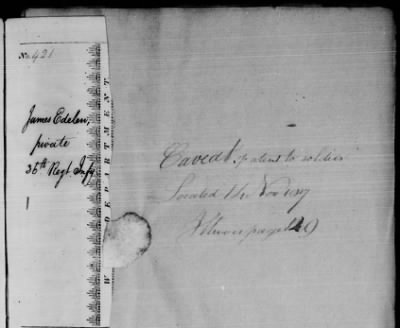 No. 421
James Edelen,
private
36th Regt. Infy
W DEPARTMENT
Caveat. patent to soldier
Located 11 Nov 1817
Illinois page 120